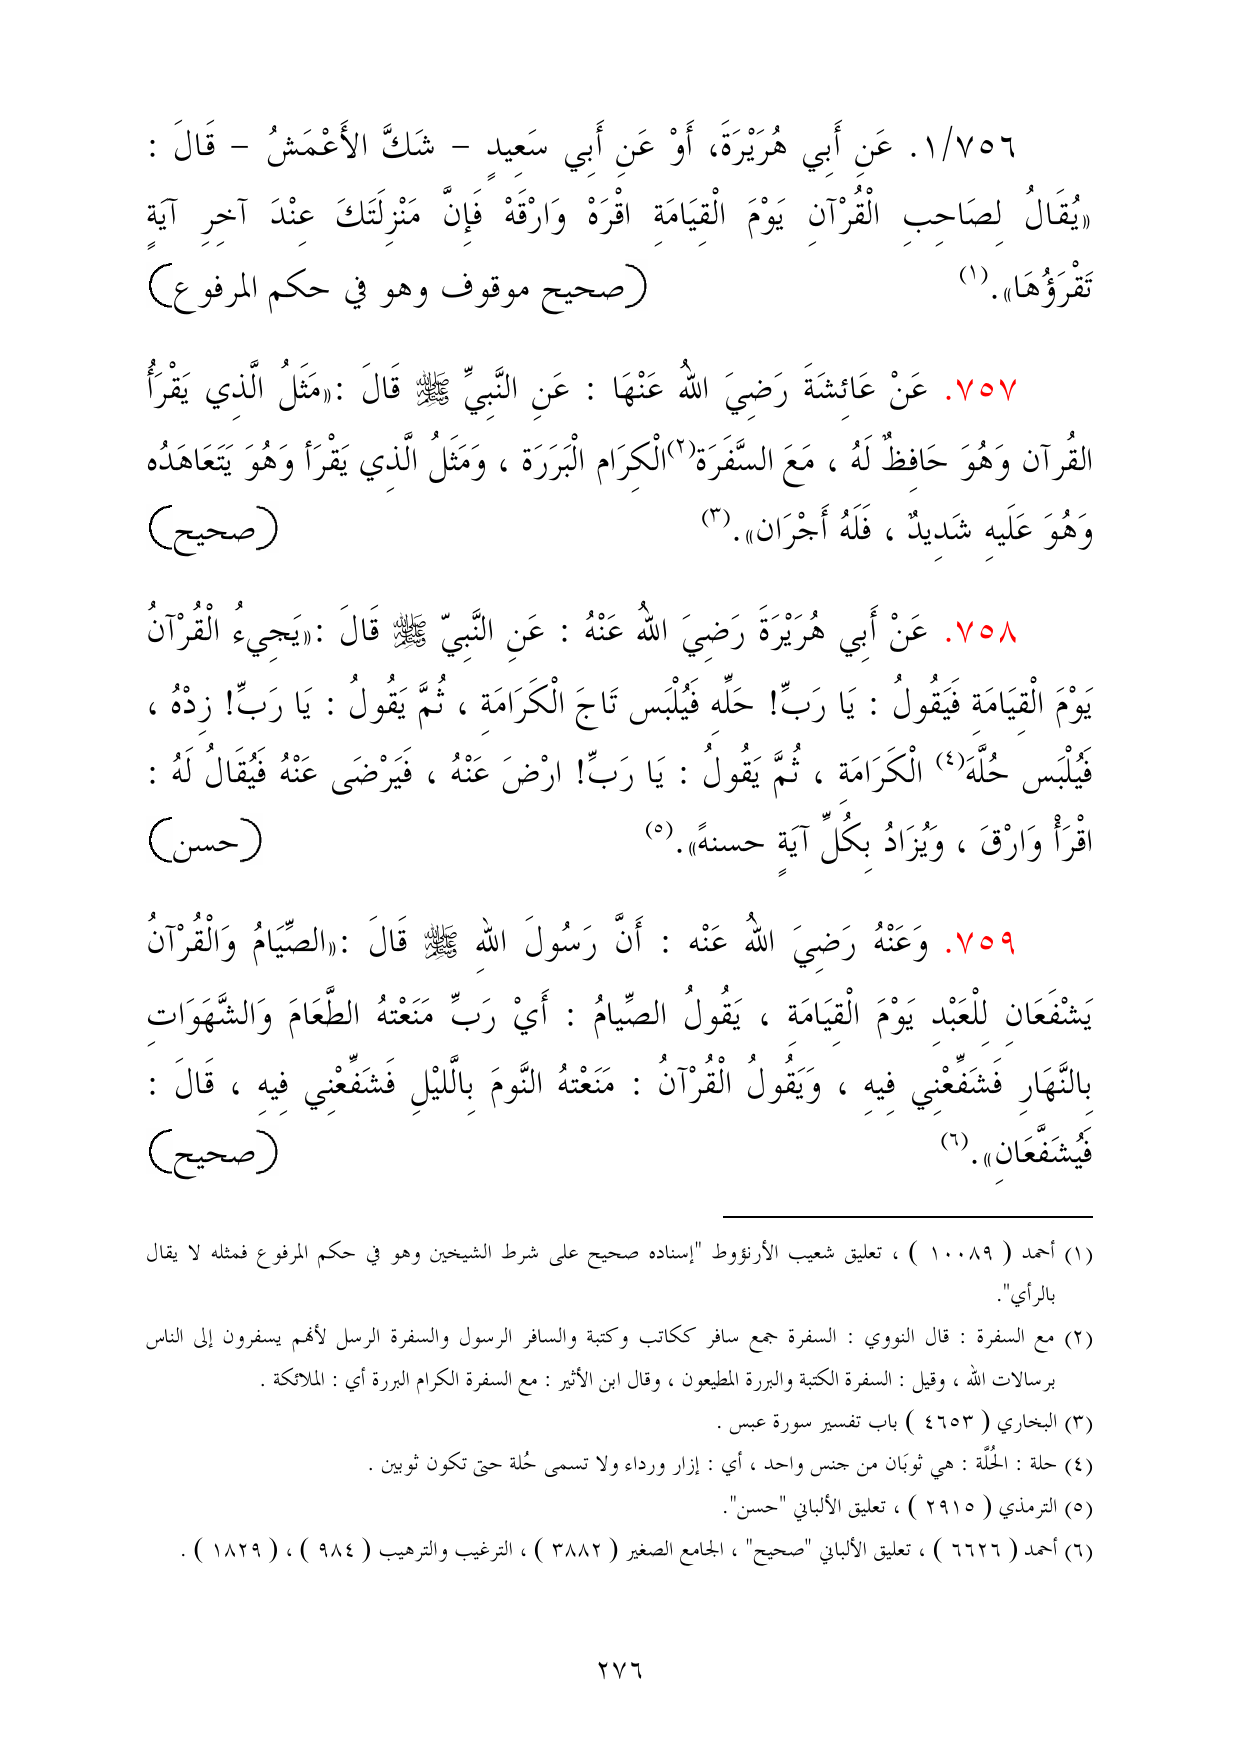 ١/٧٥٦. عَنِ أَبِي هُرَيْرَةَ، أَوْ عَنِ أَبِي سَعِيدٍ – شَكَّ الأَعْمَشُ – قَالَ :
«يُقَالُ لِصَاحِبِ الْقُرْآنِ يَوْمَ الْقِيَامَةِ اقْرَهْ وَارْقَهْ فَإِنَّ مَنْزِلَتَكَ عِنْدَ آخِرِ آيَةٍ
تَقْرَؤُهَا».(١) (صحيح موقوف وهو في حكم المرفوع)
٧٥٧. عَنْ عَائِشَةَ رَضِيَ اللهُ عَنْهَا : عَنِ النَّبِيِّ ﷺ قَالَ :«مَثَلُ الَّذِي يَقْرَأُ
القُرآن وَهُوَ حَافِظٌ لَهُ ، مَعَ السَّفَرَة(٢)الْكِرَام الْبَرَرَة ، وَمَثَلُ الَّذِي يَقْرَأ وَهُوَ يَتَعَاهَدُه
وَهُوَ عَلَيهِ شَدِيدٌ ، فَلَهُ أَجْرَان».(٣) (صحيح)
٧٥٨. عَنْ أَبِي هُرَيْرَةَ رَضِيَ اللهُ عَنْهُ : عَنِ النَّبِيّ ﷺ قَالَ :«يَجِيءُ الْقُرْآنُ
يَوْمَ الْقِيَامَةِ فَيَقُولُ : يَا رَبِّ! حَلِّهِ فَيُلْبَس تَاجَ الْكَرَامَةِ ، ثُمَّ يَقُولُ : يَا رَبِّ! زِدْهُ ،
فَيُلْبَس حُلَّةَ(٤) الْكَرَامَةِ ، ثُمَّ يَقُولُ : يَا رَبِّ! ارْضَ عَنْهُ ، فَيَرْضَى عَنْهُ فَيُقَالُ لَهُ :
اقْرَأْ وَارْقَ ، وَيُزَادُ بِكُلِّ آيَةٍ حسنهً».(٥) (حسن)
٧٥٩. وَعَنْهُ رَضِيَ اللهُ عَنْه : أَنَّ رَسُولَ اللهِ ﷺ قَالَ :«الصِّيَامُ وَالْقُرْآنُ
يَشْفَعَانِ لِلْعَبْدِ يَوْمَ الْقِيَامَةِ ، يَقُولُ الصِّيامُ : أَيْ رَبِّ مَنَعْتهُ الطَّعَامَ وَالشَّهَوَاتِ
بِالنَّهَارِ فَشَفِّعْنِي فِيهِ ، وَيَقُولُ الْقُرْآنُ : مَنَعْتهُ النَّومَ بِالَّليْلِ فَشَفِّعْنِي فِيهِ ، قَالَ :
فَيُشَفَّعَانِ».(٦) (صحيح)
(١) أحمد ( ١٠٠٨٩ ) ، تعليق شعيب الأرنؤوط "إسناده صحيح على شرط الشيخين وهو في حكم المرفوع فمثله لا يقال
بالرأي".
(٢) مع السفرة : قال النووي : السفرة جمع سافر ككاتب وكتبة والسافر الرسول والسفرة الرسل لأنهم يسفرون إلى الناس
برسالات الله ، وقيل : السفرة الكتبة والبررة المطيعون ، وقال ابن الأثير : مع السفرة الكرام البررة أي : الملائكة .
(٣) البخاري ( ٤٦٥٣ ) باب تفسير سورة عبس .
(٤) حلة : الحُلَّة : هي ثوبَان من جنس واحد ، أي : إزار ورداء ولا تسمى حُلة حتى تكون ثوبين .
(٥) الترمذي ( ٢٩١٥ ) ، تعليق الألباني "حسن".
(٦) أحمد ( ٦٦٢٦ ) ، تعليق الألباني "صحيح" ، الجامع الصغير ( ٣٨٨٢ ) ، الترغيب والترهيب ( ٩٨٤ ) ، ( ١٨٢٩ ) .
٢٧٦